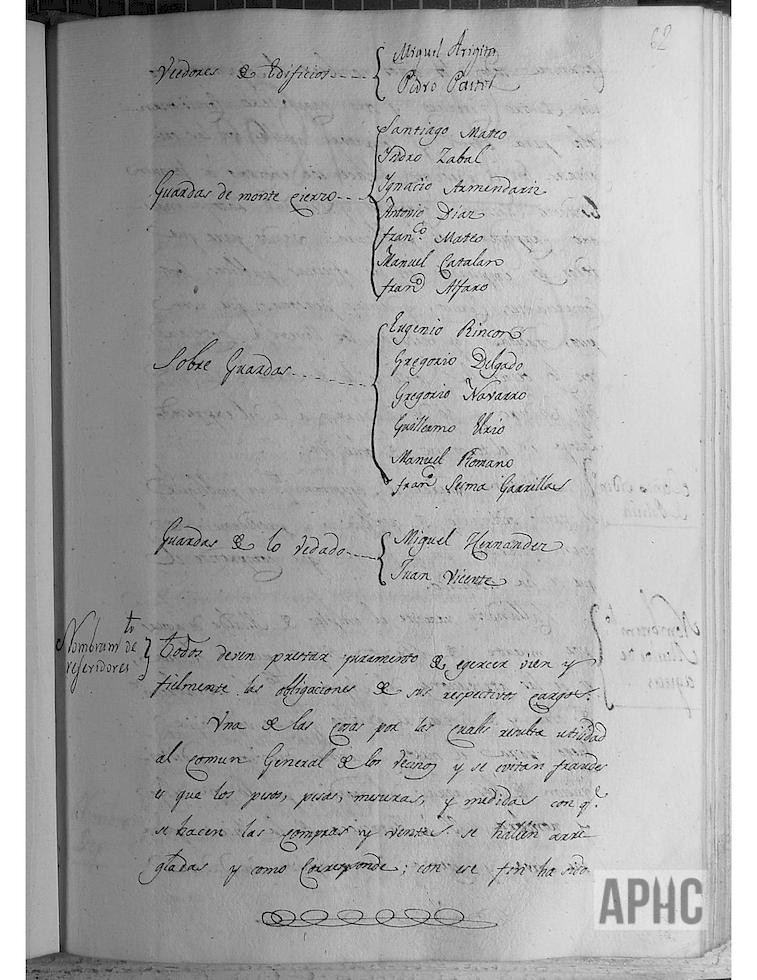 62
Veedores de Edificios ---- { Miguel Arigita
Pedro Pasqual
Guardas de monte cierzo --- { Santiago Mateo
Isidro Zabal
Ignacio Armendariz
Antonio Diaz
fran.co Mateo
Manuel Catalan
fran.co Alfaro
Sobre Guardas ------ { Eugenio Rincon
Gregorio Delgado
Gregorio Navarro
Guillermo Urio
Manuel Romano
fran.co Sesma Garrillas
Guardas de lo vedado ---- { Miguel Hernandez
Juan Vicente
Nombram.to de
reseridores }
todos deven prestar juramento de egercer vien y
fielmente las obligaciones de sus respectivos cargos.
Vna de las cosas por las quales resulta utilidad
al comun General de los vecinos y se evitan fraudes
es que los pesos, pesas, mesuras, y medidas con q.e
se hacen las compras y ventas se hallen arre
gladas y como Corresponde; con ese fin ha sido
APHC